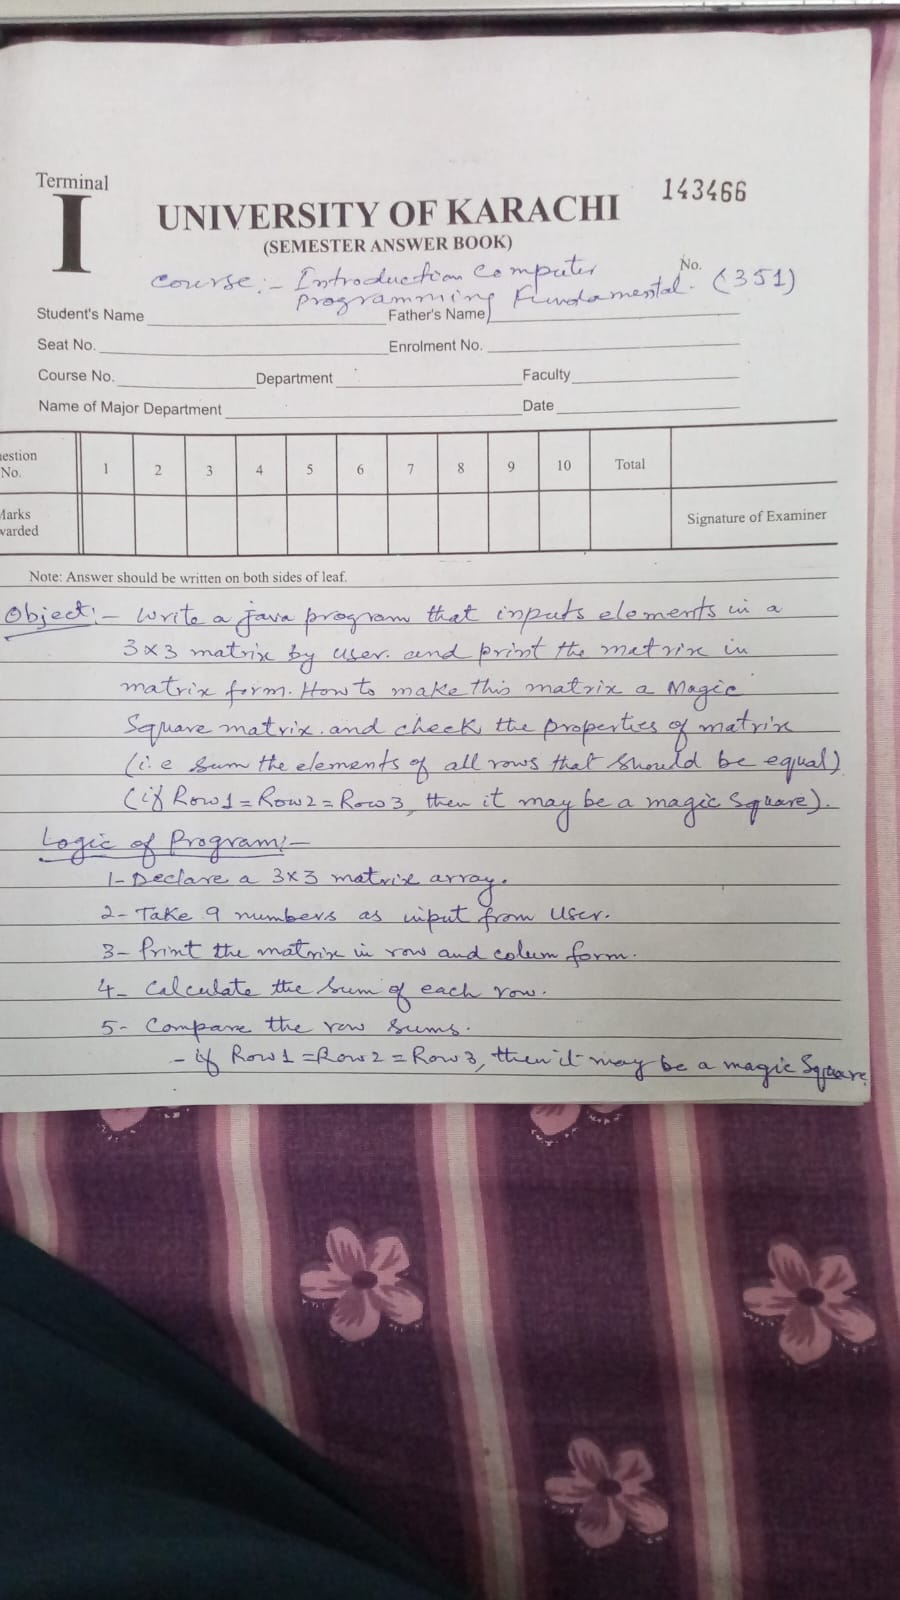 Terminal
I
143466
UNIVERSITY OF KARACHI
(SEMESTER ANSWER BOOK)
No.
Course:- Introduction Computer
Programming Fundamental. (351)
Student's Name Father's Name
Seat No. Enrolment No.
Course No. Department Faculty
Name of Major Department Date
uestion No. 1 2 3 4 5 6 7 8 9 10 Total
Marks warded Signature of Examiner
Note: Answer should be written on both sides of leaf.
Object:- Write a java program that inputs elements in a
3×3 matrix by user. and print the matrix in
matrix form. How to make this matrix a Magic
Square matrix. and check the properties of matrix
(i.e sum the elements of all rows that should be equal)
(if Row1 = Row2 = Row3, then it may be a magic square).
Logic of Program:-
1- Declare a 3×3 matrix array.
2- Take 9 numbers as input from user.
3- Print the matrix in row and colum form.
4- Calculate the sum of each row.
5- Compare the row sums.
- if Row1 = Row2 = Row3, then it may be a magic Square.